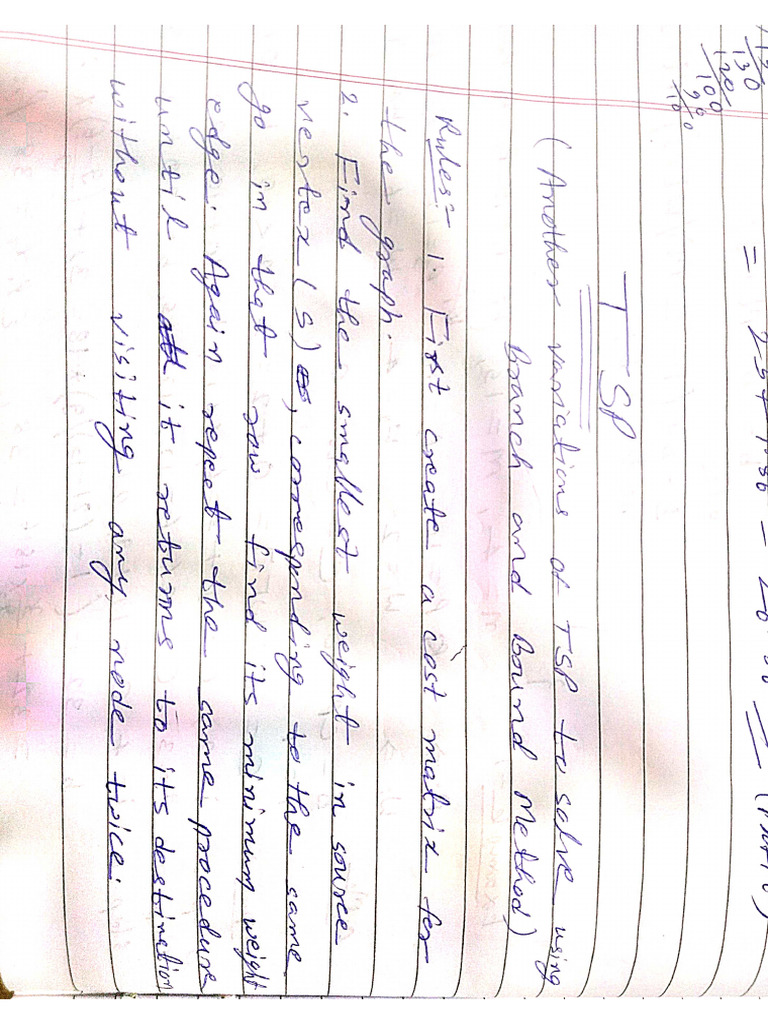 130
120
100
90
100
TSP
(Another variations of TSP to solve using
Branch and Bound Method)
Rules:- 1. First create a cost matrix for
the graph.
2. Find the smallest weight in source
vertex (S), corresponding to the same
go in that row find its minimum weight
edge. Again repeat the same procedure
until it returns to its destination
without visiting any node twice.